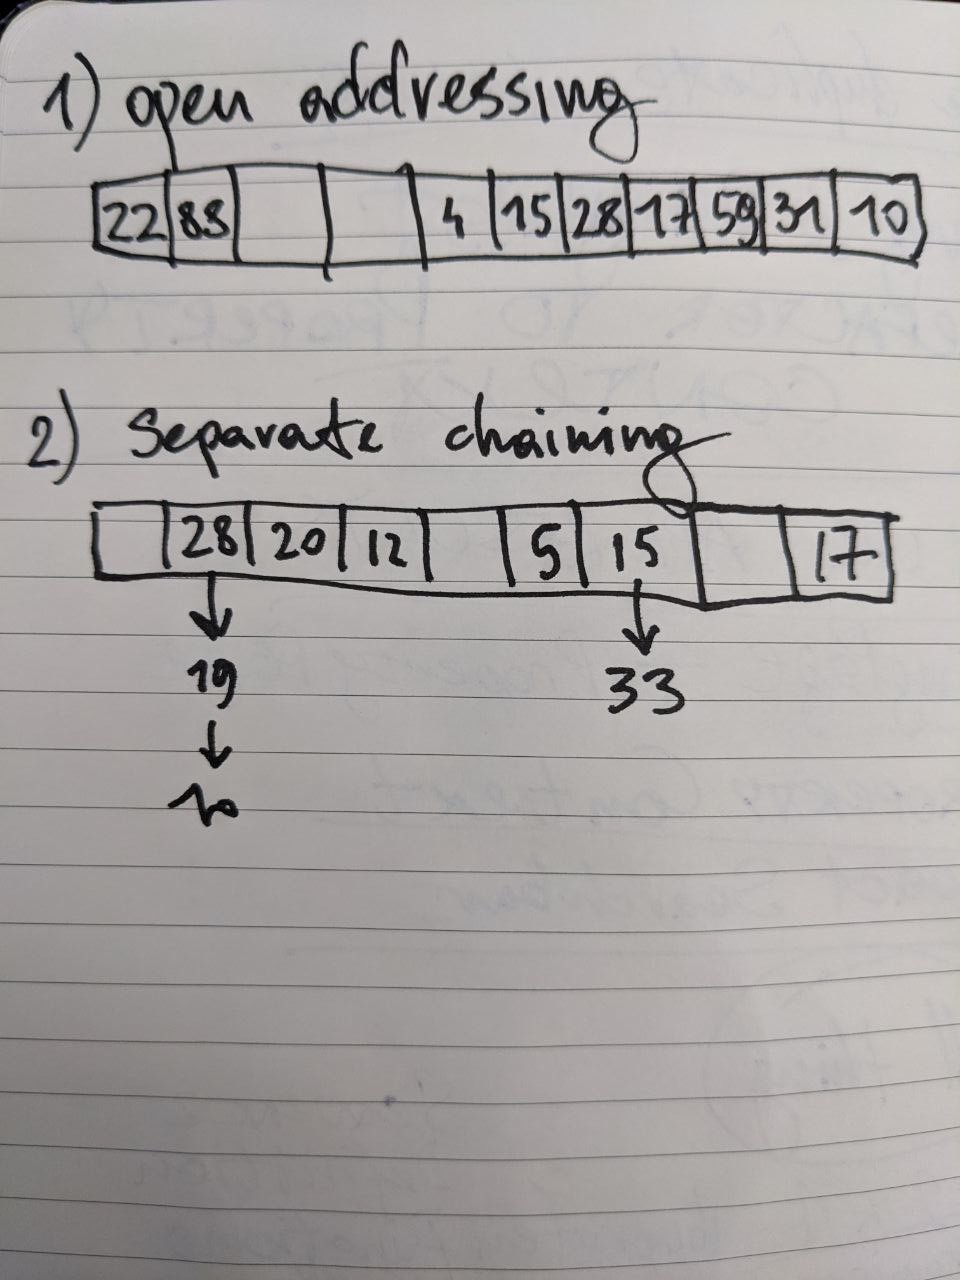 1) open addressing
22 88 4 15 28 17 59 31 10
2) Separate chaining
28 20 12 5 15 17
19 33
10